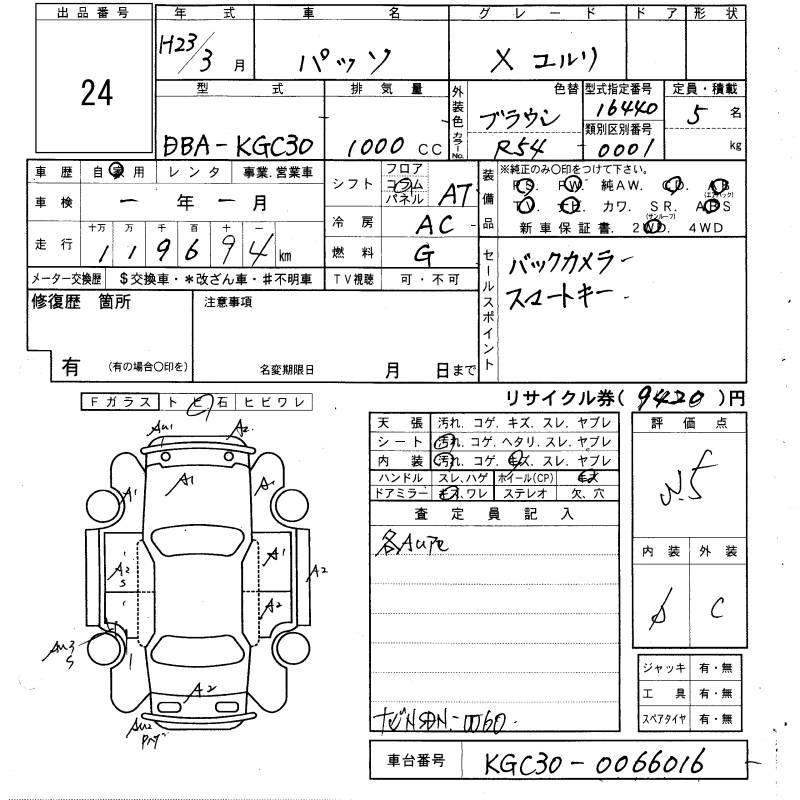 出品番号 年式 車名 グレード ドア 形状
24 H23/3月 パッソ X ユルリ
型式 排気量 外装色 カラーNo. 色替 型式指定番号 定員・積載
ブラウン 16440 5名
DBA-KGC30 1000cc R54 類別区別番号 0001 kg
車歴 自家用 レンタ 事業.営業車 シフト フロア コラム パネル AT 装備品 ※純正のみ〇印をつけて下さい。
PS. PW. 純AW. CD. AB(エアバック)
車検 ー年ー月 TV. ナビ カワ. SR.(サンルーフ) ABS
冷房 AC 新車保証書. 2WD. 4WD
走行 十万 万 千 百 十 一
119694km 燃料 G セールスポイント バックカメラー
メーター交換歴 $交換車・*改ざん車・#不明車 TV視聴 可・不可 スマートキー.
修復歴 箇所 注意事項
有 (有の場合〇印を) 名変期限日 月 日まで
リサイクル券(9420)円
Fガラス トビ石 ヒビワレ
天張 汚れ. コゲ. キズ. スレ. ヤブレ 評価点
シート 汚れ. コゲ. ヘタリ. スレ. ヤブレ
内装 汚れ. コゲ. キズ. スレ. ヤブレ
ハンドル スレ、ハゲ ホイール(CP) キズ
ドアミラー キズ、ワレ ステレオ 欠、穴
査定員記入
各AUアセ
内装 外装
C
AU1 A2
A1
A1 A
A2 S A1 A2
A2
AU3 S
A2
AU2
ジャッキ 有・無
工具 有・無
スペアタイヤ 有・無
車台番号 KGC30-0066016